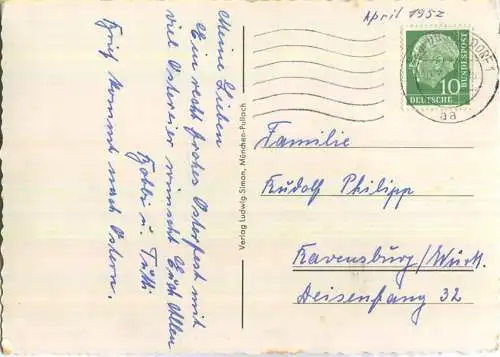 April 1952
Meine Lieben
Ein recht frohes Osterfest mit
viel Ostereier wünscht Euch Allen
u. Tutti
kommt nach Ostern.
Verlag Ludwig Simon, München-Pullach
DEUTSCHE BUNDESPOST
10
aa
Familie
Rudolf Philipp
Ravensburg/Württ.
32